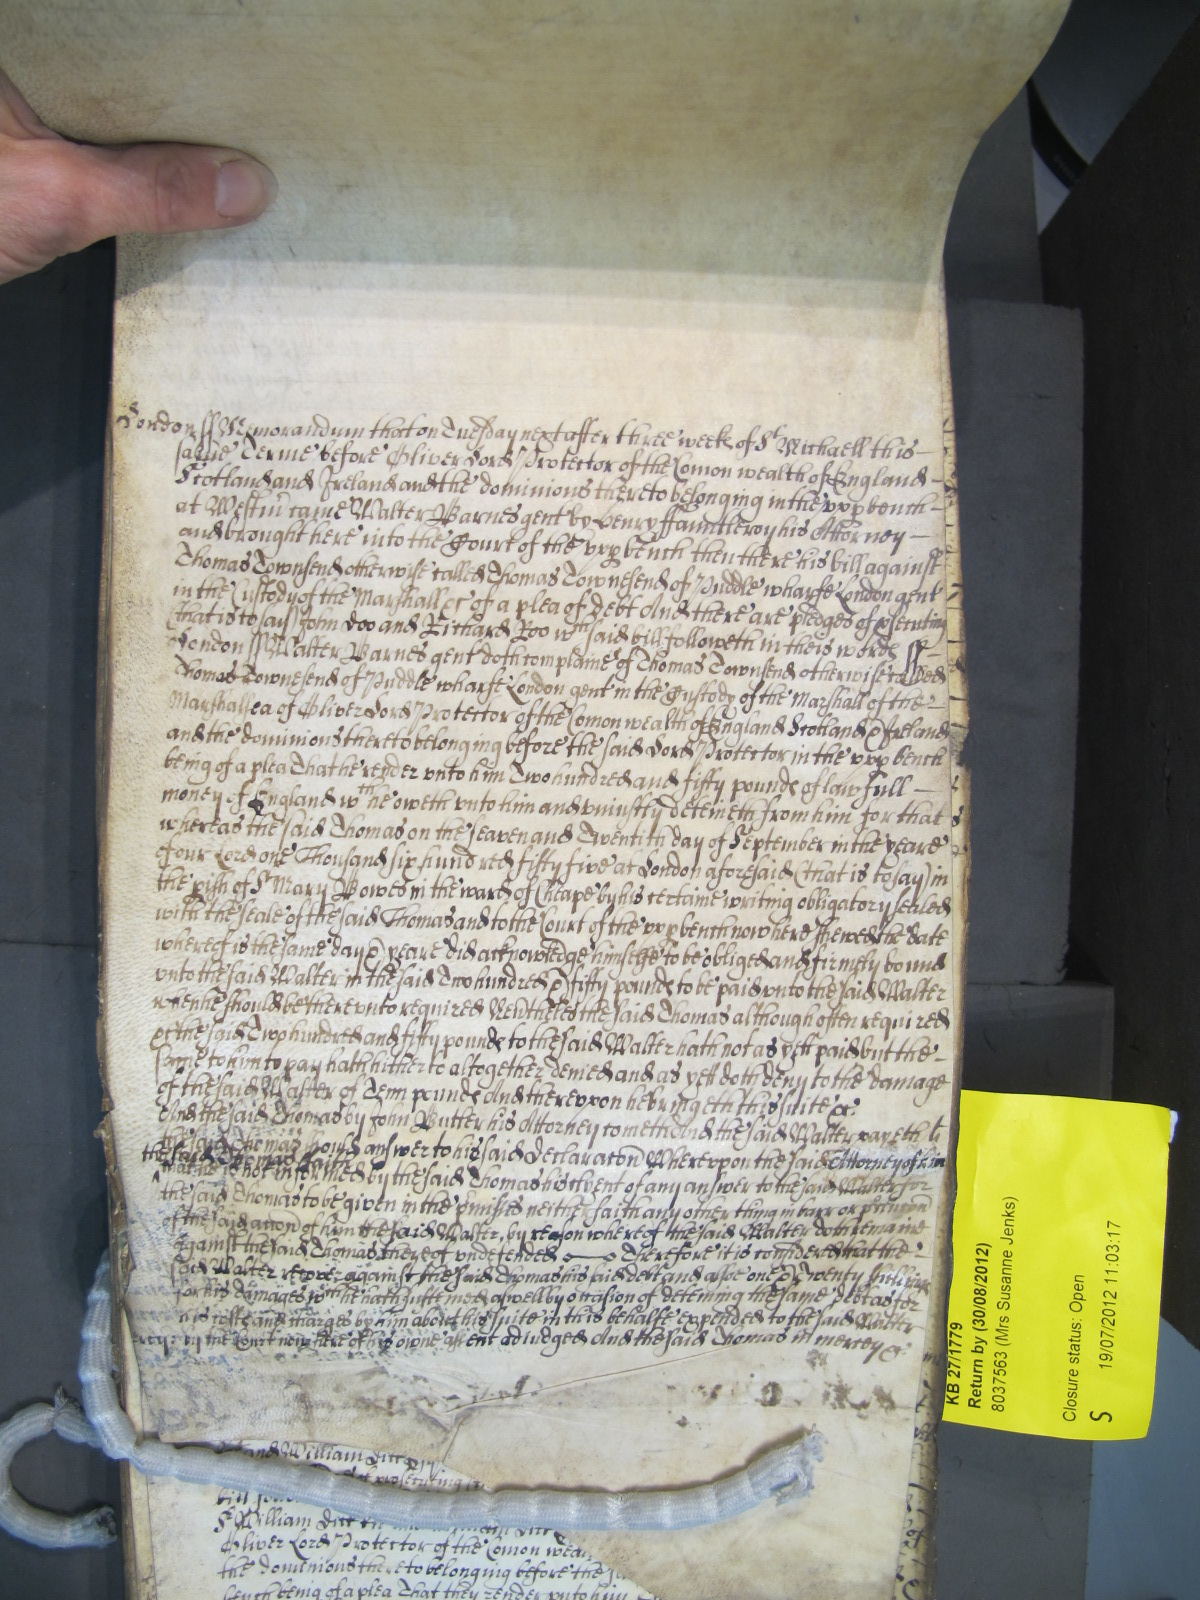 London ss Memorandum that on Tuesday next after three week of St Michaell this
same Terme before Oliver Lord Protector of the Comon wealth of England
Scotland and Ireland and the dominions thereto belonging in the vpp bench
at Westm came Walter Barnes gent by Henry ffauntleroy his Attorney
and brought here into the Court of the vpp bench then there his bill against
Thomas Townsend otherwise called Thomas Townesend of Puddle wharfe London gent
in the Custody of the Marshall &c of a plea of debt And there are pledges of psecuting
(that is to say) John Doo and Richard Roo wch said bill followeth in theis words ss
London ss Walter Barnes gent doth complaine of Thomas Townsend otherwise called
Thomas Townesend of Puddle wharfe London gent in the Custody of the Marshall of the
Marshallsea of Oliver Lord Protector of the Comon wealth of England Scotland & Ireland
and the dominions thereto belonging before the said Lord Protector in the vpp bench
being of a plea That he render vnto him Two hundred and fifty pounds of lawfull
money of England wch he oweth vnto him and vniustly deteineth from him for that
whereas the said Thomas on the seaven and Twentith day of September in the yeare
of our Lord one Thousand six hundred fifty five at London aforesaid (that is to say) in
the pish of St Mary Bowe in the ward of Cheape by his certaine writing obligatory sealed
with the seale of the said Thomas and to the Court of the vpp bench now here shewed the date
whereof is the same day & yeare did acknowledge himselfe to be obliged and firmely bound
vnto the said Walter in the said Two hundred & fifty pounds to be paid vnto the said Walter
when he should be therevnto required Neutheles the said Thomas although often required
&c the said Two hundred and fifty pounds to the said Walter hath not as yett paid but the
same to him to pay hath hitherto altogether denied and as yett doth deny to the damage
of the said Walter of Tenn pounds And therevpon he bringeth this suite &c
And the said Thomas by John Butler his Attorney cometh And the said Walter prayeth
the said Thomas answer to his said Declaracon Wherevpon the said Attorney of him
the said Thomas
that he is not informed by the said Thomas his clyent of any answer to the said Walter for
the said Thomas to be given in the pmisses neither saith any other thing in barr or
of the said accon of him the said Walter, by reason whereof the said Walter doth remaine
against the said Thomas thereof undefended Therefore it is considered that the
said Walter recover against the said Thomas his said debt and alsoe one & Twenty shillings
for his damages wch he hath susteined aswell by occasion of deteining the same debt as for
his costs and charges by him about his suite in this behalfe expended to the said Walter
mercy by the Court now here of his owne assent adiudged And the said Thomas in mercy &c
and William Ditt
of prosecuting
bill
William Ditt
Oliver Lord Protector of the Comon wea
the dominions thereto belonging before the
bench being of a plea That they render vnto him
KB 27/1779
Return by (30/08/2012)
8037563 (Mrs Susanne Jenks)
Closure status: Open
S 19/07/2012 11:03:17